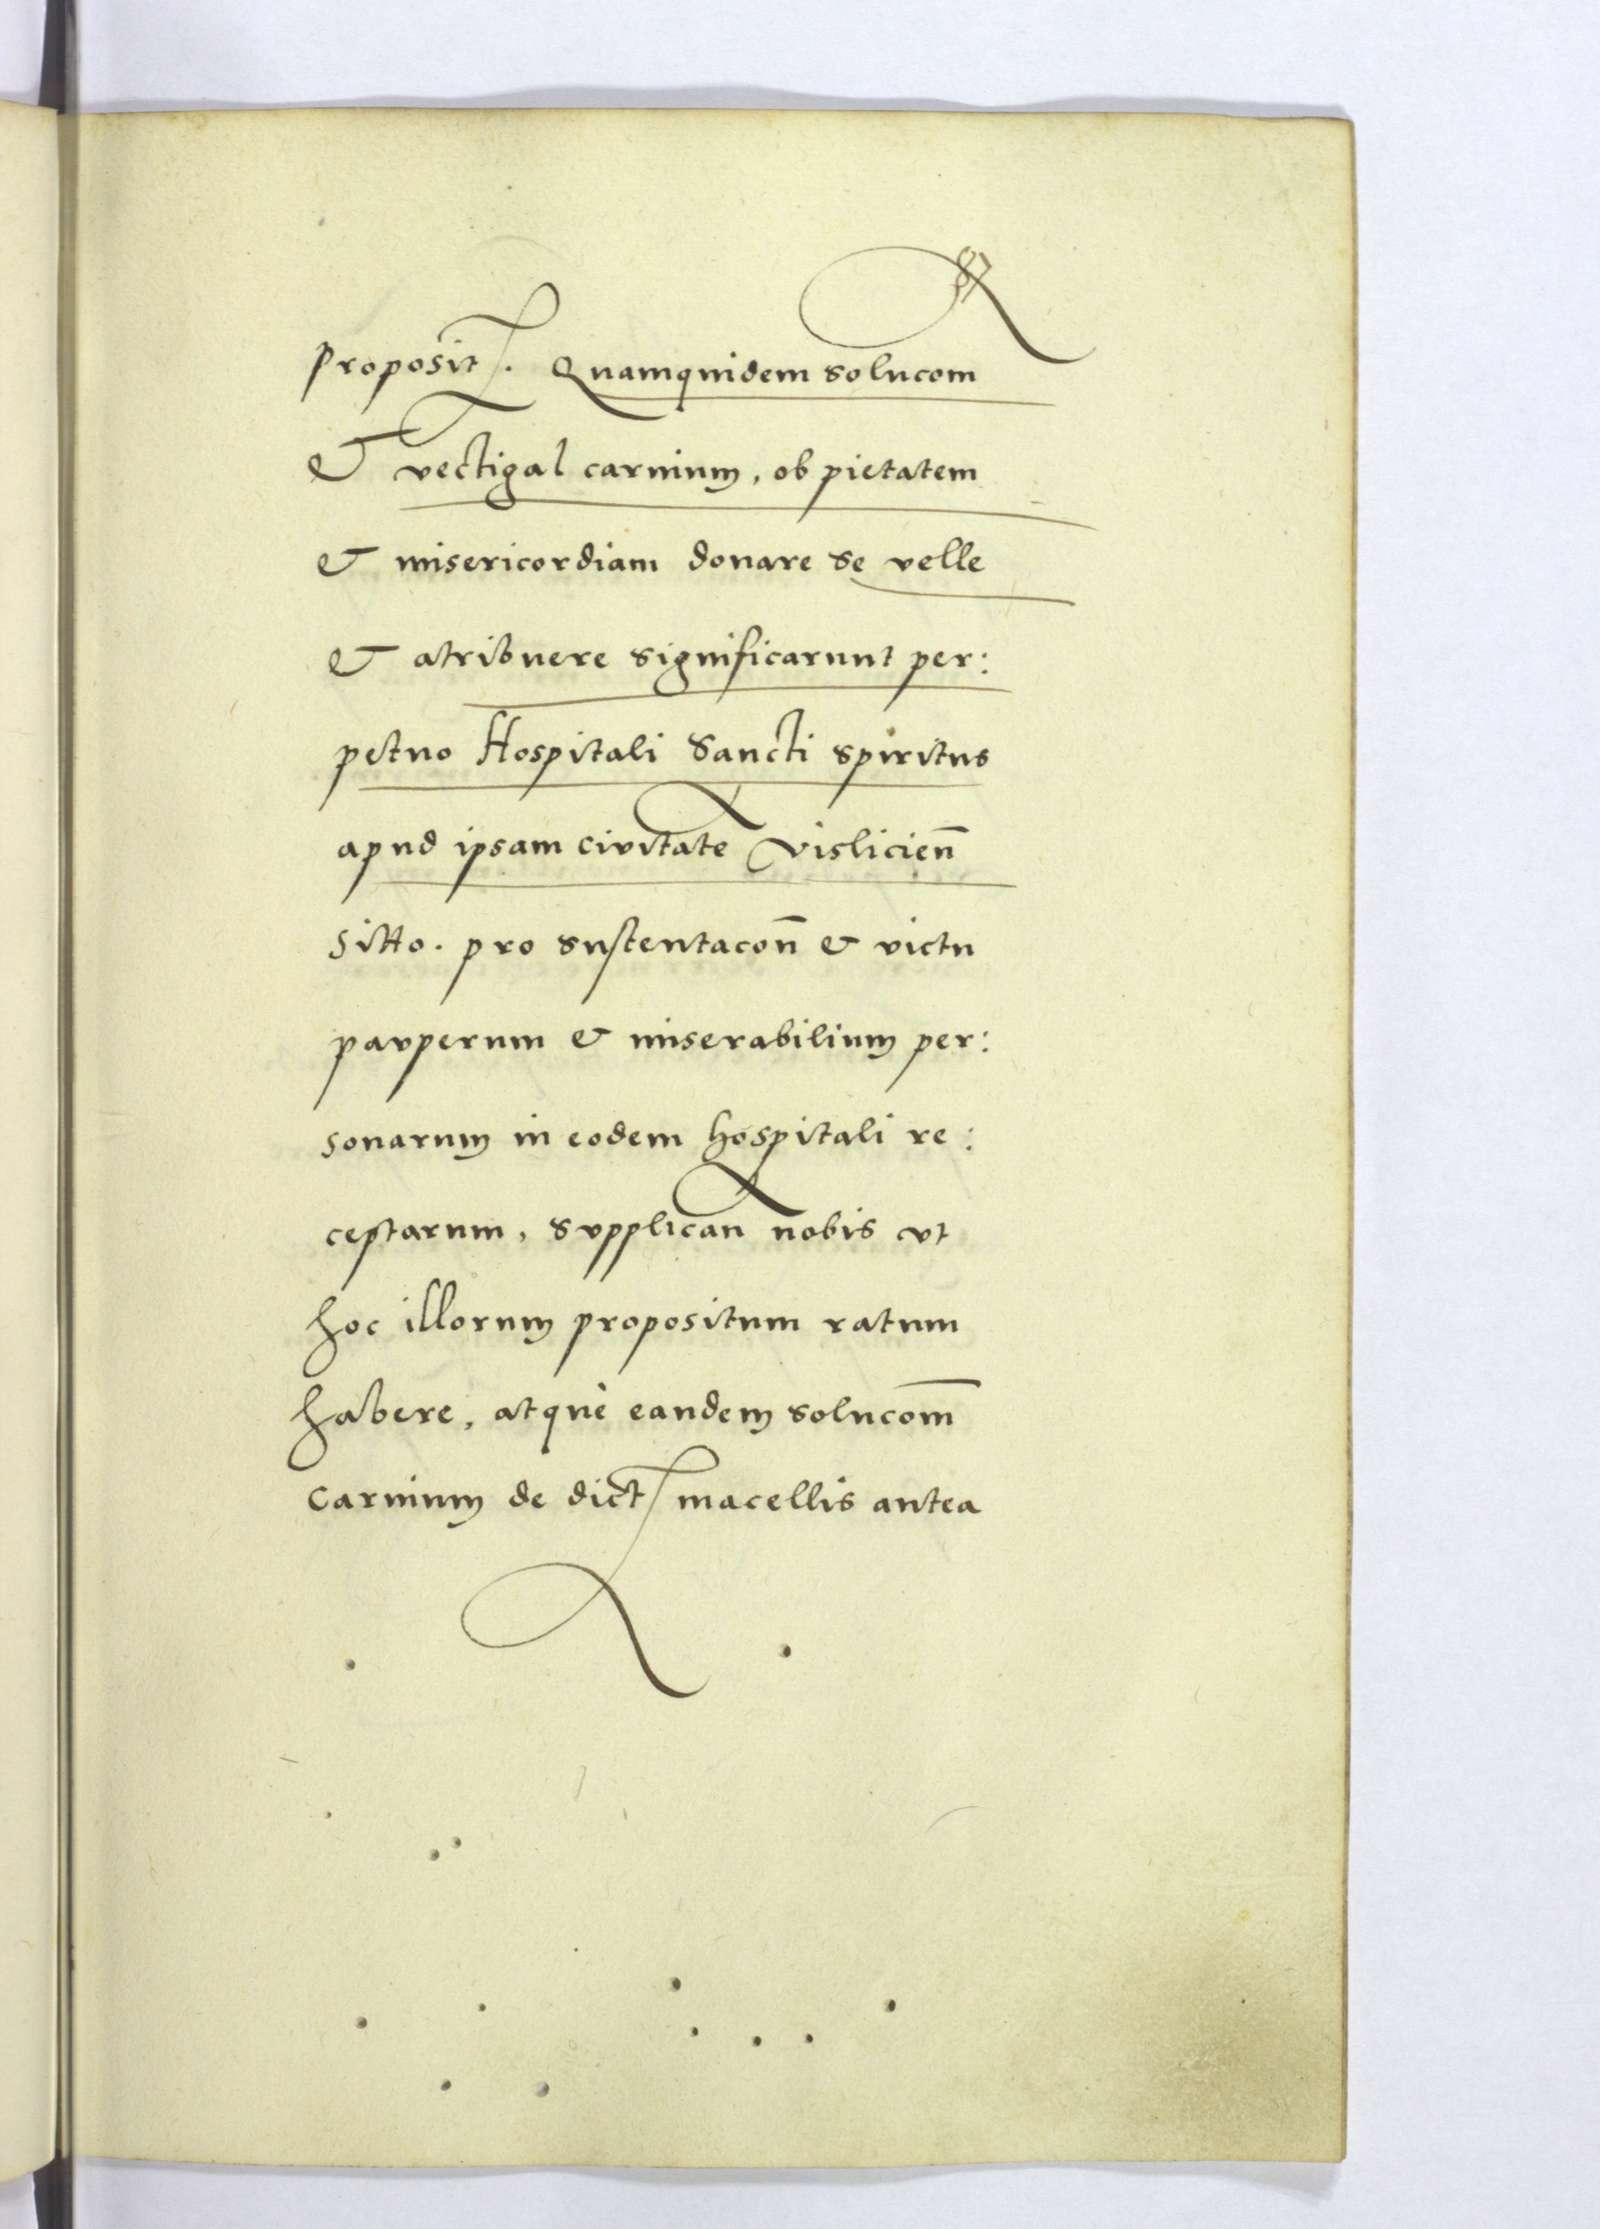 87
Proposit. Quamquidem solucom
& vectigal carnium, ob pietatem
& misericordiam donare se velle
& atribuere significarunt per:
petuo Hospitali Sancti spiritus
apud ipsam civitate Vislicien̄
sitto. pro sustentacon̄ & victu
pauperum & miserabilium per:
sonarum in eodem hospitali re:
ceptarum, supplican nobis vt
hoc illorum propositum ratum
habere, atque eandem solucom̄
carnium de dict macellis antea